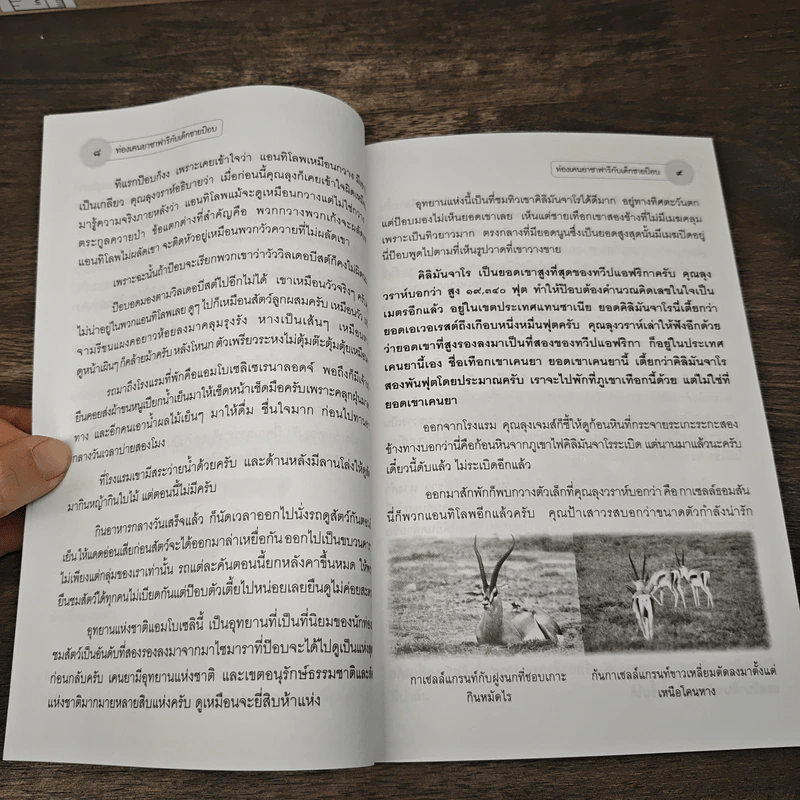 ๘ ท่องเคนยาซาฟารีกับเด็กชายป๊อบ
ทีแรกป๊อบก็งง เพราะเคยเข้าใจว่า แอนทิโลพเหมือนกวาง
เป็นเกลียว คุณลุงวราห์อธิบายว่า เมื่อก่อนนี้คุณลุงก็เคยเข้าใจผิด
มารู้ความจริงภายหลังว่า แอนทิโลพแม้จะดูเหมือนกวางแต่ไม่ใช่กวาง
ตระกูลควายป่า ข้อแตกต่างที่สำคัญคือ พวกกวางพวกเก้งจะผลัดเขา
แอนทิโลพไม่ผลัดเขา จะติดหัวอยู่เหมือนพวกวัวควายที่ไม่ผลัดเขา
เพราะฉะนั้นถ้าป๊อบจะเรียกพวกเขาว่าวัววิลเดอบีสต์ก็คงไม่ผิด
ป๊อบอดมองตามวิลเดอบีสต์ไปอีกไม่ได้ เขาเหมือนวัวจริงๆ ครับ
ไม่น่าอยู่ในพวกแอนทิโลพเลย ดูๆ ไปก็เหมือนสัตว์ลูกผสมครับ เหมือนวัว
จามรีขนแผงคอยาวห้อยลงมาคลุมรุงรัง หางเป็นเส้นๆ เหมือน
ดูหน้าเผินๆ ก็คล้ายม้าครับ หลังโหนก ตัวเพรียวระหงไม่ตุ้มต๊ะตุ้มตุ้ยเหมือน
รถมาถึงโรงแรมที่พักคือแอมโบเซลิเซเรนาลอดจ์ พอถึงก็มี
ยืนคอยส่งผ้าขนหนูเปียกน้ำเย็นมาให้เช็ดหน้าเช็ดมือครับเพราะคลุกฝุ่นมา
ทาง และอีกคนเอาน้ำผลไม้เย็นๆ มาให้ดื่ม ชื่นใจมาก ก่อนไปทาน
กลางวันเวลาบ่ายสองโมง
ที่โรงแรมเขามีสระว่ายน้ำด้วยครับ และด้านหลังมีลานโล่งให้
มากินหญ้ากินใบไม้ แต่ตอนนี้ไม่มีครับ
กินอาหารกลางวันเสร็จแล้ว ก็นัดเวลาออกไปนั่งรถดูสัตว์กันตอน
เย็น ให้แดดอ่อนเสียก่อนสัตว์จะได้ออกมาล่าเหยื่อกัน ออกไปเป็นขบวน
ไม่เพียงแต่กลุ่มของเราเท่านั้น รถแต่ละคันตอนนี้ยกหลังคาขึ้นหมด
ยืนชมสัตว์ได้ทุกคนไม่เบียดกันแต่ป๊อบตัวเตี้ยไปหน่อยเลยยืนดูไม่ค่อย
อุทยานแห่งชาติแอมโบเซลินี้ เป็นอุทยานที่เป็นที่นิยมของนัก
ชมสัตว์เป็นอันดับที่สองรองลงมาจากมาไซมาราที่ป๊อบจะได้ไปดูเป็นแห่ง
ก่อนกลับครับ เคนยามีอุทยานแห่งชาติ และเขตอนุรักษ์ธรรมชาติและ
แห่งชาติมากมายหลายสิบแห่งครับ ดูเหมือนจะยี่สิบห้าแห่ง
ท่องเคนยาซาฟารีกับเด็กชายป๊อบ ๙
อุทยานแห่งนี้เป็นที่ชมทิวเขาคิลิมันจาโรได้ดีมาก อยู่ทางทิศตะวันตก
แต่ป๊อบมองไม่เห็นยอดเขาเลย เห็นแต่ชายเทือกเขาสองข้างที่ไม่มีเมฆคลุม
เพราะเป็นทิวยาวมาก ตรงกลางที่มียอดนูนซึ่งเป็นยอดสูงสุดนั้นมีเมฆปิดอยู่
นี่ป๊อบพูดไปตามที่เห็นรูปวาดที่เขาวางขาย
คิลิมันจาโร เป็นยอดเขาสูงที่สุดของทวีปแอฟริกาครับ คุณลุง
วราห์บอกว่า สูง ๑๙,๓๔๐ ฟุต ทำให้ป๊อบต้องคำนวณคิดเลขในใจเป็น
เมตรอีกแล้ว อยู่ในเขตประเทศแทนซาเนีย ยอดคิลิมันจาโรนี่เตี้ยกว่า
ยอดเอเวอเรสต์ถึงเกือบหนึ่งหมื่นฟุตครับ คุณลุงวราห์เล่าให้ฟังอีกด้วย
ว่ายอดเขาที่สูงรองลงมาเป็นที่สองของทวีปแอฟริกา ก็อยู่ในประเทศ
เคนยานี้เอง ชื่อเทือกเขาเคนยา ยอดเขาเคนยานี้ เตี้ยกว่าคิลิมันจาโร
สองพันฟุตโดยประมาณครับ เราจะไปพักที่ภูเขาเทือกนี้ด้วย แต่ไม่ใช่ที่
ยอดเขาเคนยา
ออกจากโรงแรม คุณลุงเจมส์ก็ชี้ให้ดูก้อนหินที่กระจายระเกะระกะสอง
ข้างทางบอกว่านี่คือก้อนหินจากภูเขาไฟคิลิมันจาโรระเบิด แต่นานมาแล้วนะครับ
เดี๋ยวนี้ดับแล้ว ไม่ระเบิดอีกแล้ว
ออกมาสักพักก็พบกวางตัวเล็กที่คุณลุงวราห์บอกว่า คือ กาเซลล์ธอมสัน
นี่ก็พวกแอนทิโลพอีกแล้วครับ คุณป้าเสาวรสบอกว่าขนาดตัวกำลังน่ารัก
กาเซลล์แกรนท์กับฝูงนกที่ชอบเกาะ
กินหมัดไร
ก้นกาเซลล์แกรนท์ขาวเหลี่ยมตัดลงมาตั้งแต่
เหนือโคนหาง